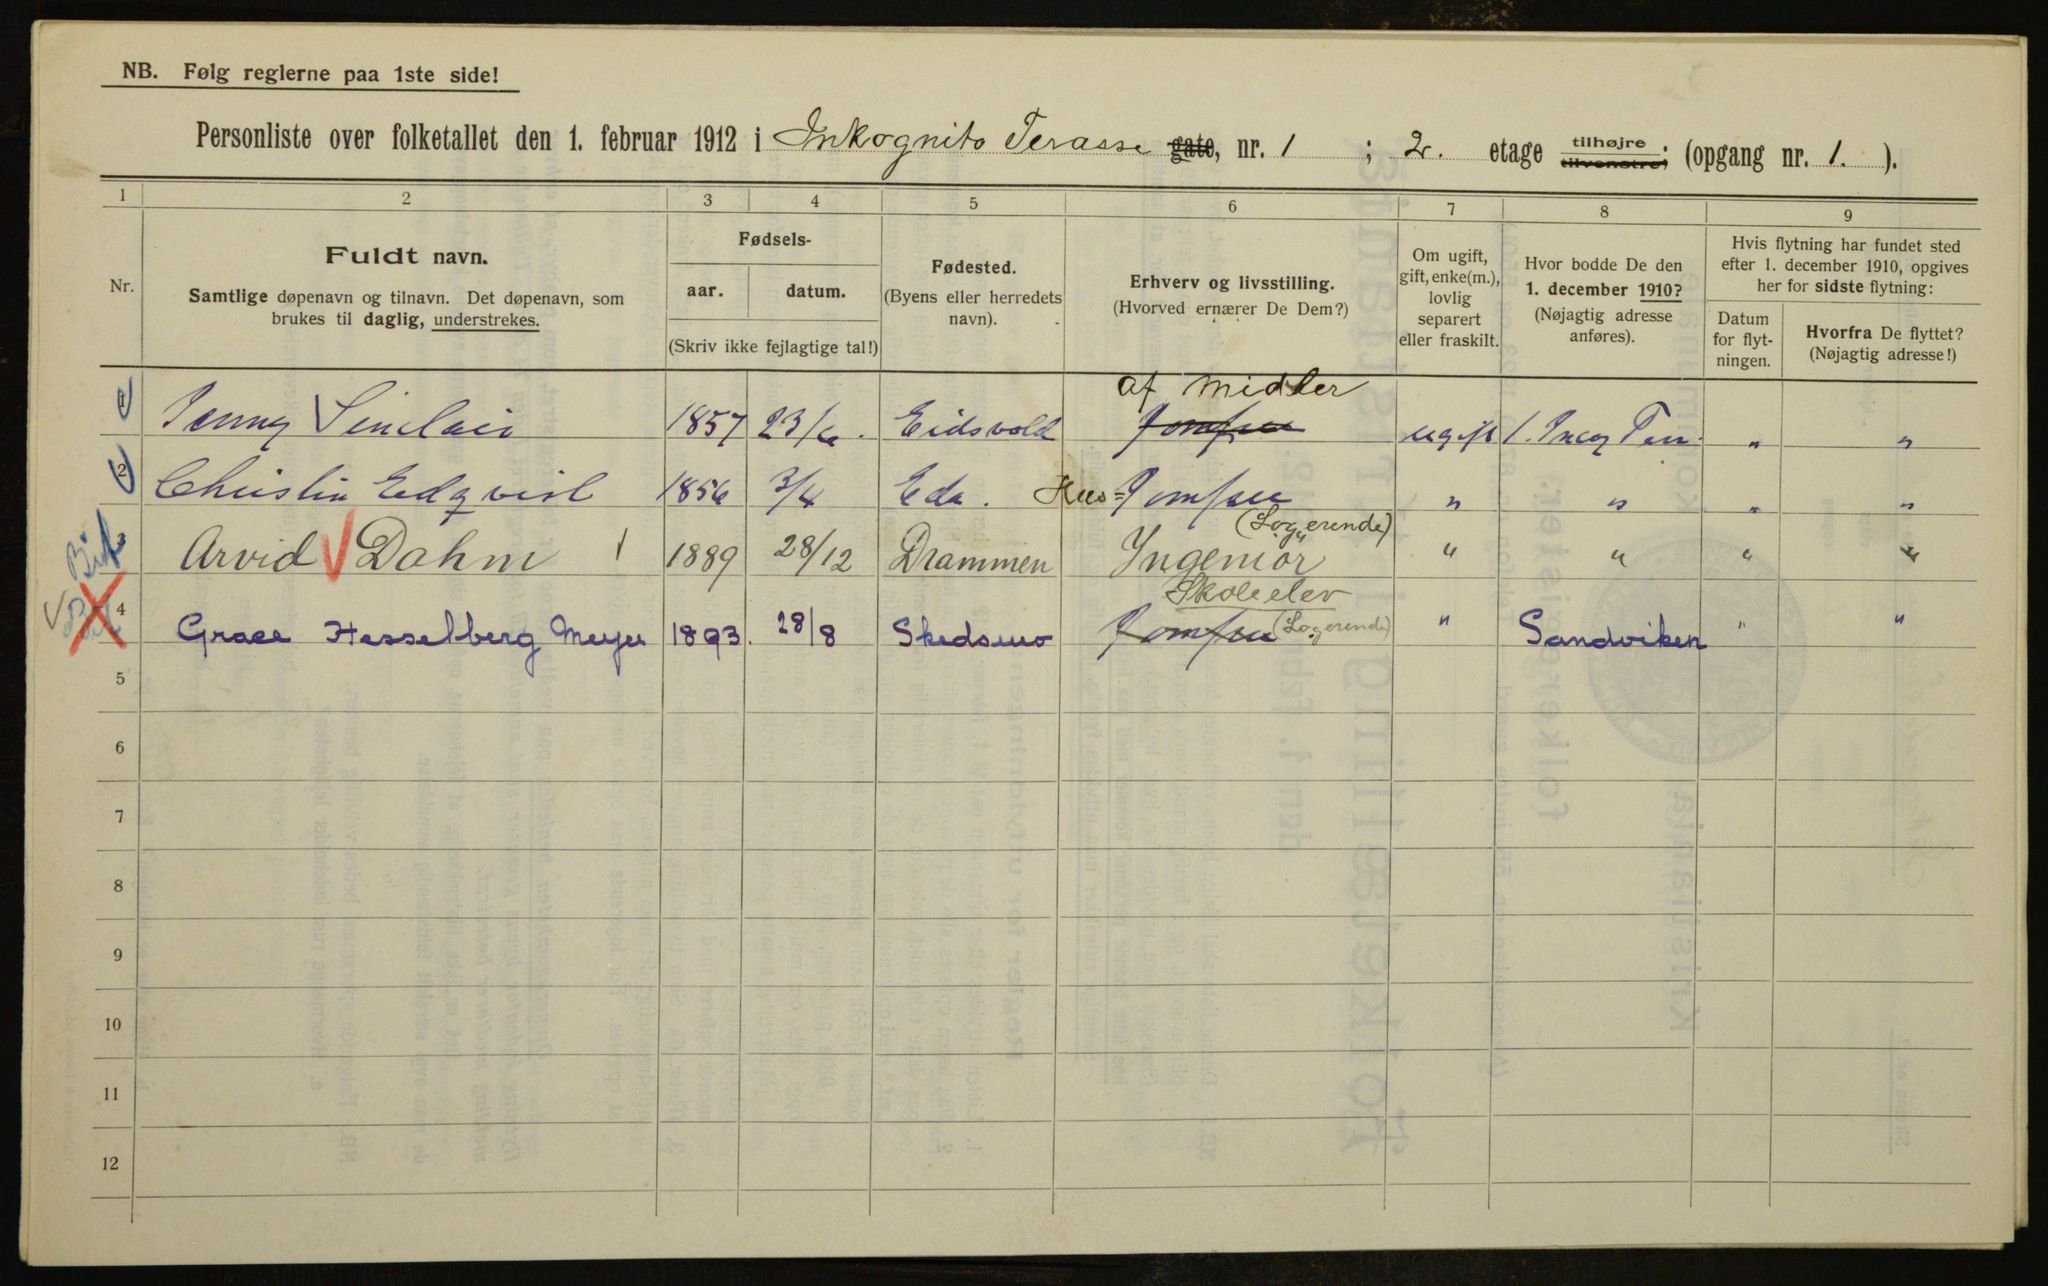 NB. Følg reglerne paa 1ste side!
Personliste over folketallet den 1. februar 1912 i Inkognito Terasse gate, nr. 1 ; 2. etage tilhøjre tilvenstre; (opgang nr. 1. ).
1 2 3 4 5 6 7 8 9
Nr.
Fuldt navn.
Samtlige døpenavn og tilnavn. Det døpenavn, som
brukes til daglig, understrekes.
Fødsels-
aar. datum.
(Skriv ikke fejlagtige tal!)
Fødested.
(Byens eller herredets
navn).
Erhverv og livsstilling.
(Hvorved ernærer De Dem?)
Om ugift,
gift, enke(m.),
lovlig
separert
eller fraskilt.
Hvor bodde De den
1. december 1910?
(Nøjagtig adresse
anføres).
Hvis flytning har fundet sted
efter 1. december 1910, opgives
her for sidste flytning:
Datum
for flyt-
ningen.
Hvorfra De flyttet?
(Nøjagtig adresse!)
af midler
1 Jenny Sinclair 1857 23/6. Eidsvold Jomfru ugift 1. Incog Terr. " "
2 Christin Edqvist 1856 3/4 Eda. Hus= Jomfru " " " "
(Logerende)
3 Arvid Dahm 1889 28/12 Drammen Ingeniør " " " "
Skoleelev
4 Grace Hesselberg Meyer 1893. 28/8 Skedsmo Jomfru (Logerende) " Sandviken " "
5
6
7
8
9
10
11
12